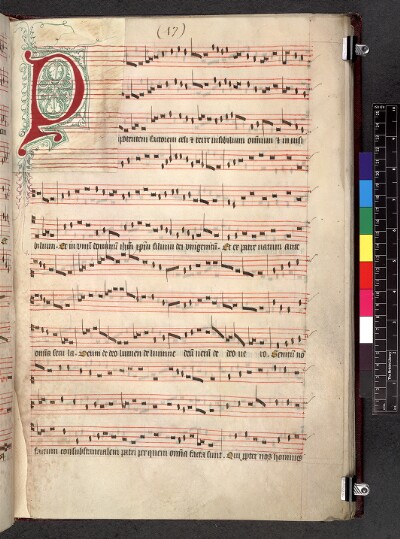 (17)
P
factorem celi et terre visibilium omnium et invisi
bilium. Et in unum dominum filium dei unigenitum. Et ex patre natum ante
omnia secula. Deum de deo lumen de lumine deum verum de deo ve ro. Genitum no
factum consubstancialem patri per quem omnia facta sunt. Qui propter nos homines